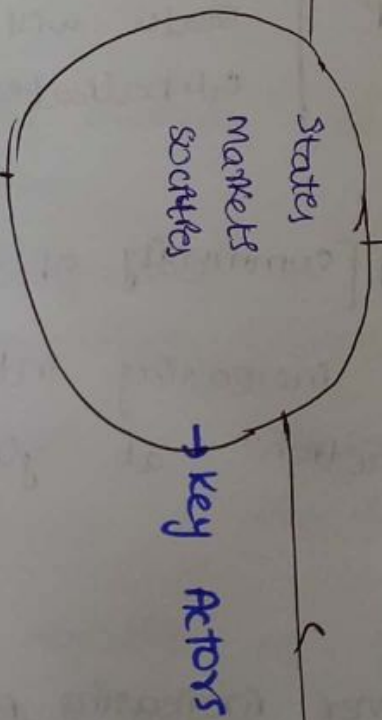 States
Markets
Socities
→ Key Actors